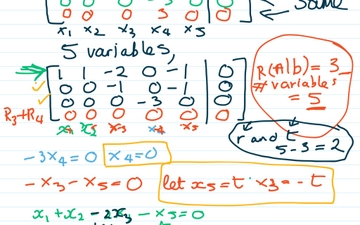 0 0 0 3 0 0
0 0 0 0 0 0
Same
x₁ x₂ x₃ x₄ x₅
5 variables,
1 1 -2 0 -1 0
0 0 -1 0 -1 0
0 0 0 -3 0 0
R₃+R₄ 0 0 0 0 0 0
x₁ x₂ x₃ x₄ x₅
R(A|b) = 3
# variables
= 5
r and t
5-3=2
-3x₄=0 x₄=0
-x₃-x₅=0 let x₅=t · x₃=-t
x₁+x₂-2x₃-x₅=0